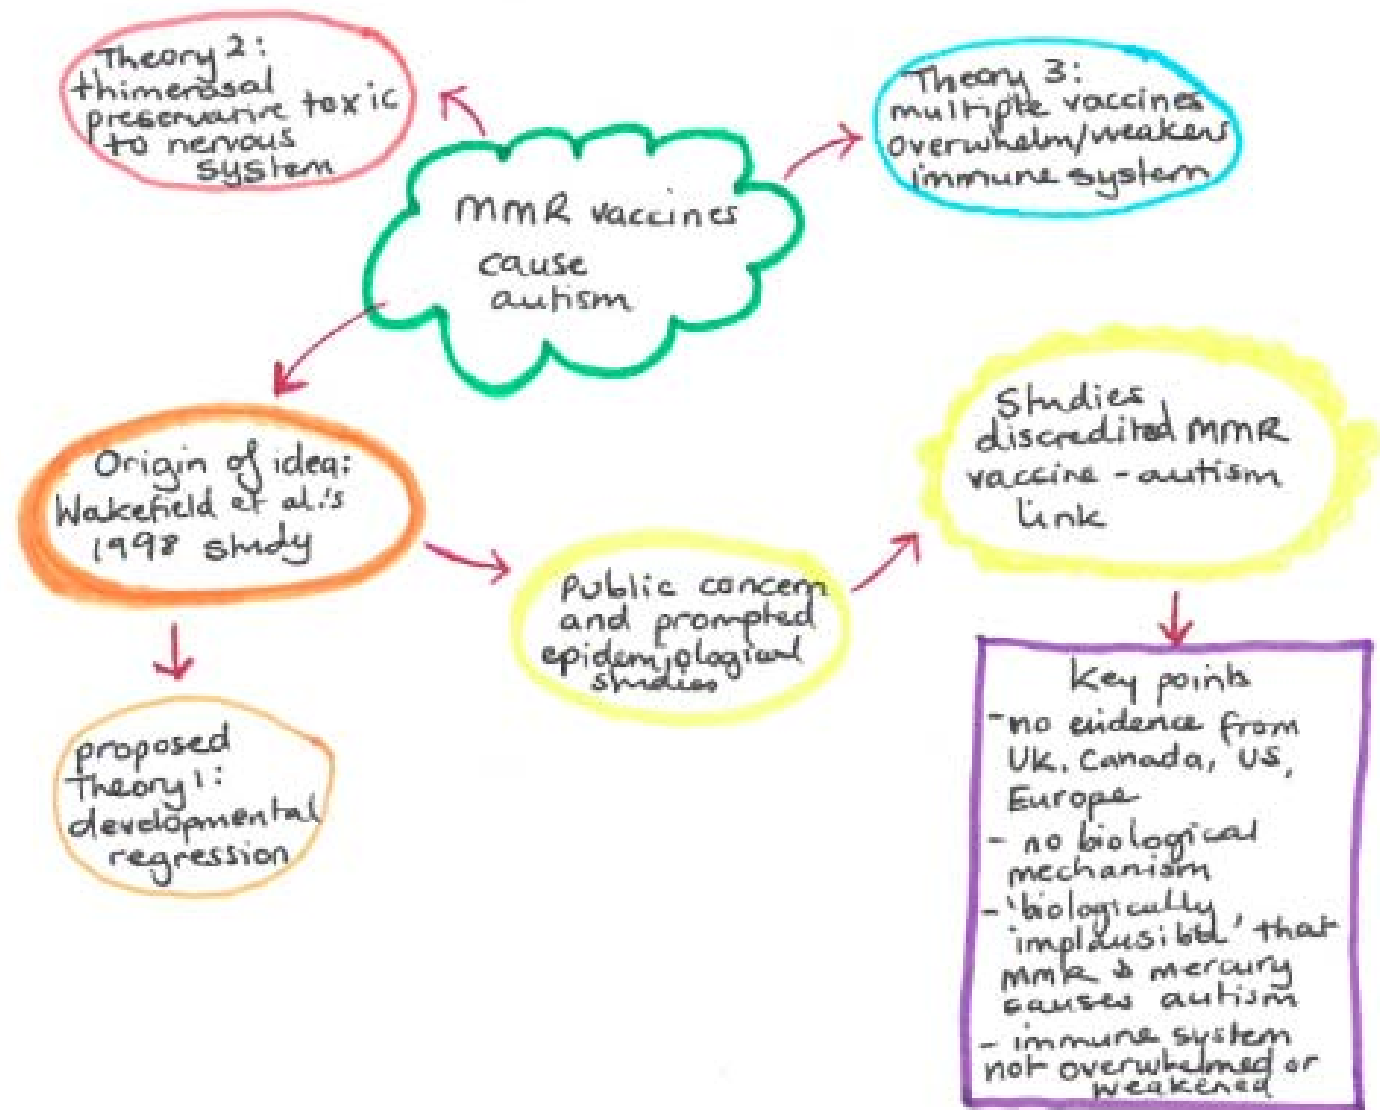 Theory 2:
thimerosal
preservative toxic
to nervous
system
MMR vaccines
cause
autism
Theory 3:
multiple vaccines
overwhelm/weakens
immune system
Origin of idea:
Wakefield et al.'s
1998 study
proposed
Theory 1:
developmental
regression
Public concern
and prompted
epidemiological
studies
Studies
discredited MMR
vaccine - autism
link
Key points
- no evidence from
UK, Canada, US,
Europe
- no biological
mechanism
- 'biologically
implausible' that
MMR & mercury
causes autism
- immune system
not overwhelmed or
weakened